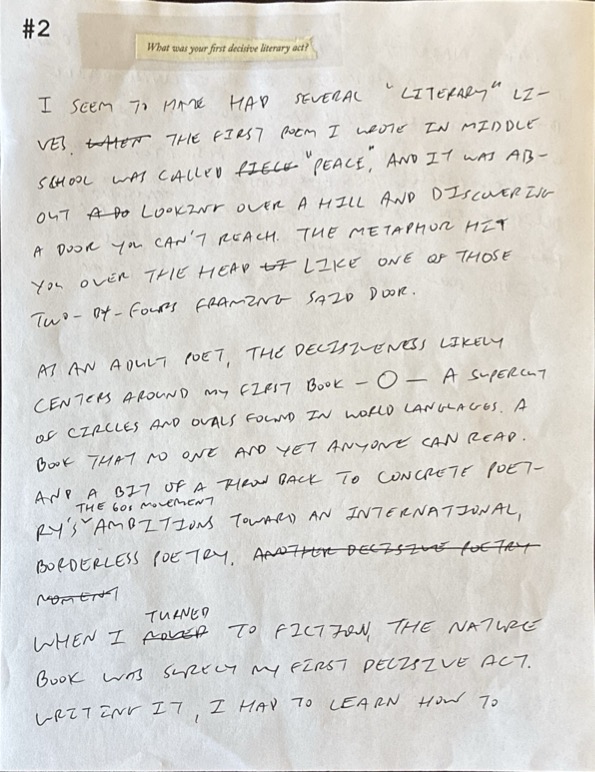 #2
What was your first decisive literary act?
I SEEM TO HAVE HAD SEVERAL "LITERARY" LI-
VES. WHEN THE FIRST POEM I WROTE IN MIDDLE
SCHOOL WAS CALLED PIECE "PEACE", AND IT WAS AB-
OUT A DO LOOKING OVER A HILL AND DISCOVERING
A DOOR YOU CAN'T REACH. THE METAPHOR HIT
YOU OVER THE HEAD LIKE ONE OF THOSE
TWO-BY-FOURS FRAMING SAID DOOR.
AS AN ADULT POET, THE DECISIVENESS LIKELY
CENTERS AROUND MY FIRST BOOK – O – A SUPERCUT
OF CIRCLES AND OVALS FOUND IN WORLD LANGUAGES. A
BOOK THAT NO ONE AND YET ANYONE CAN READ.
AND A BIT OF A THROW BACK TO CONCRETE POET-
THE 60s MOVEMENT
RY'S AMBITIONS TOWARD AN INTERNATIONAL,
BORDERLESS POETRY. ANOTHER DECISIVE POETRY
MOMENT
TURNED
WHEN I MOVED TO FICTION, THE NATURE
BOOK WAS SURELY MY FIRST DECISIVE ACT.
WRITING IT, I HAD TO LEARN HOW TO